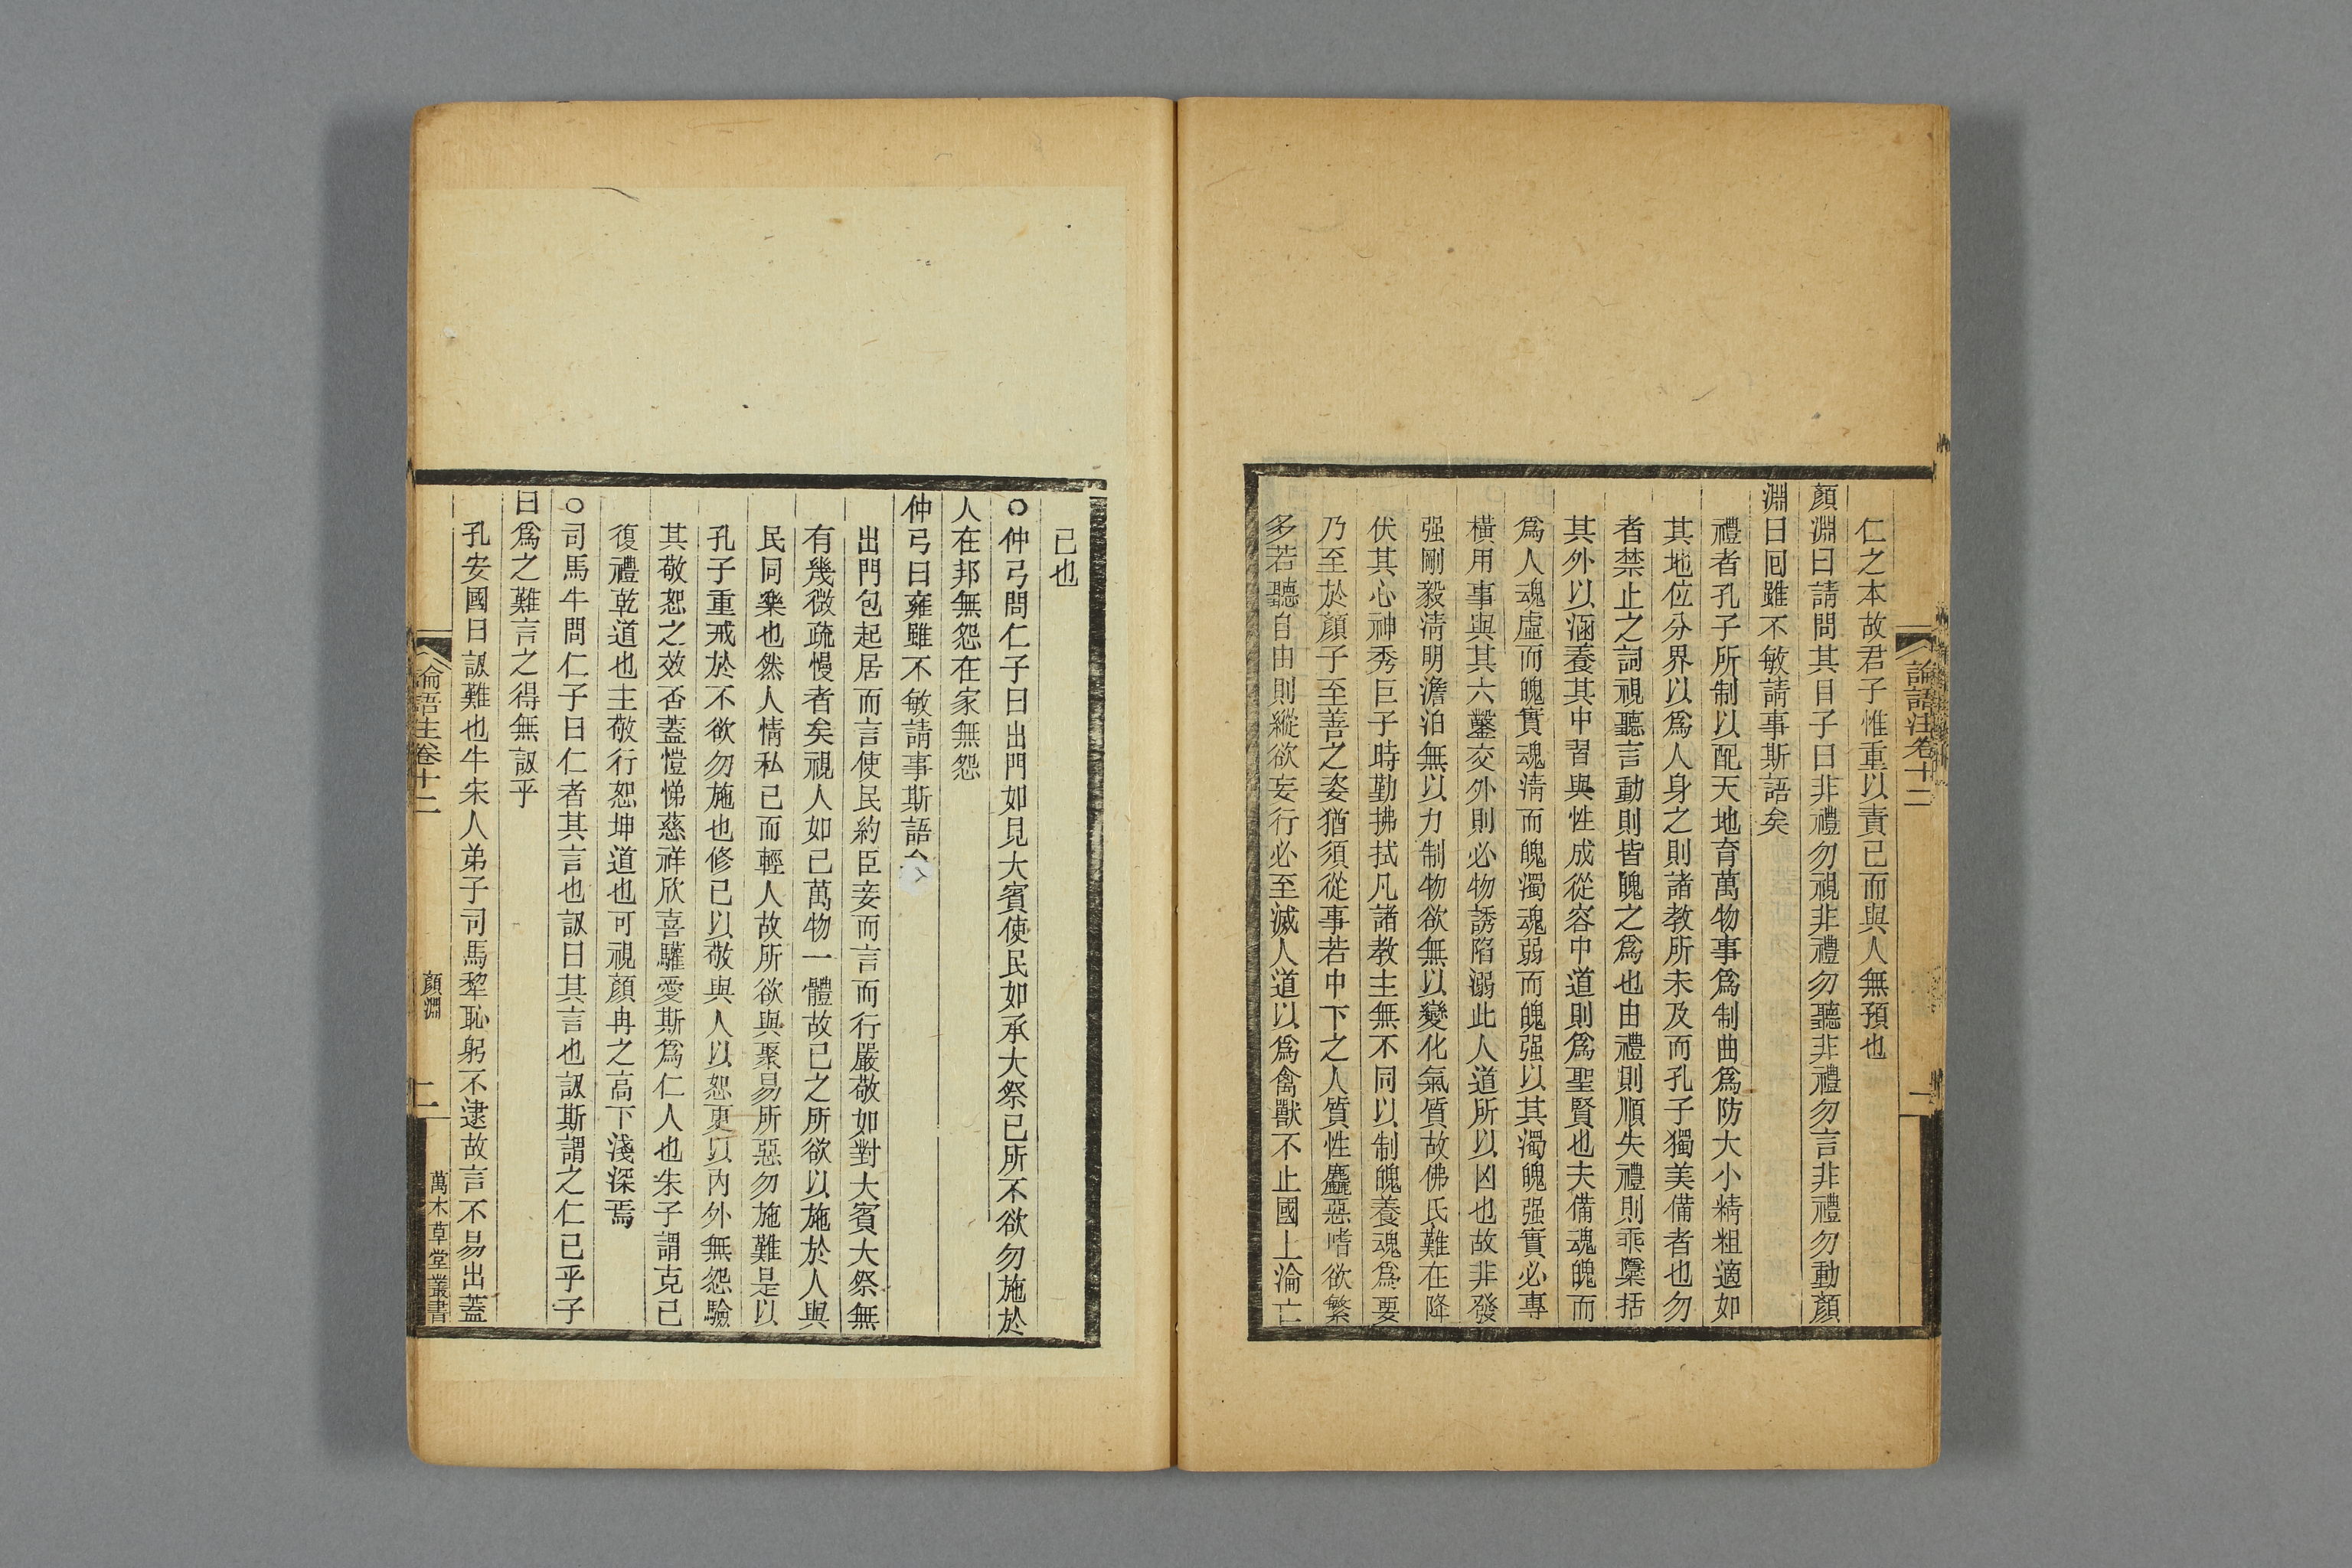 論語注卷十二
仁之本故君子惟重以責已而與人無預也
顏淵曰請問其目子曰非禮勿視非禮勿聽非禮勿言非禮勿動顏
淵曰回雖不敏請事斯語矣
禮者孔子所制以配天地育萬物事爲制曲爲防大小精粗適如
其地位分界以爲人身之則諸教所未及而孔子獨美備者也勿
者禁止之詞視聽言動則皆魄之爲也由禮則順失禮則乖檃括
其外以涵養其中習與性成從容中道則爲聖賢也夫備魂魄而
爲人魂虛而魄實魂淸而魄濁魂弱而魄强以其濁魄强實必專
橫用事與其六鑿交外則必物誘陷溺此人道所以凶也故非發
强剛毅淸明澹泊無以力制物欲無以變化氣質故佛氏難在降
伏其心神秀巨子時勤拂拭凡諸教主無不同以制魄養魂爲要
乃至於顏子至善之姿猶須從事若中下之人質性麤惡嗜欲繁
多若聽自由則縱欲妄行必至滅人道以爲禽獸不止國土淪亡
已也
○仲弓問仁子曰出門如見大賓使民如承大祭已所不欲勿施於
人在邦無怨在家無怨
仲弓曰雍雖不敏請事斯語
出門包起居而言使民約臣妾而言而行嚴敬如對大賓大祭無
有幾微疏慢者矣視人如己萬物一體故已之所欲以施於人與
民同樂也然人情私已而輕人故所欲與聚易所惡勿施難是以
孔子重戒於不欲勿施也修已以敬與人以恕更以內外無怨驗
其敬恕之效否蓋愷悌慈祥欣喜驩愛斯爲仁人也朱子謂克己
復禮乾道也主敬行恕坤道也可視顏冉之高下淺深焉
○司馬牛問仁子曰仁者其言也訒曰其言也訒斯謂之仁已乎子
曰爲之難言之得無訒乎
孔安國曰訒難也牛宋人弟子司馬犂恥躬不逮故言不易出蓋
論語注卷十二
顏淵
二
萬木草堂叢書